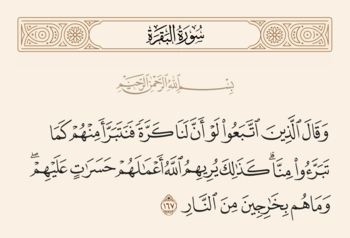 سُورَةُ البَقَرَةِ
بِسْمِ اللَّهِ الرَّحْمَٰنِ الرَّحِيمِ
وَقَالَ ٱلَّذِينَ ٱتَّبَعُوا۟ لَوْ أَنَّ لَنَا كَرَّةً فَنَتَبَرَّأَ مِنْهُمْ كَمَا
تَبَرَّءُوا۟ مِنَّا ۗ كَذَٰلِكَ يُرِيهِمُ ٱللَّهُ أَعْمَٰلَهُمْ حَسَرَٰتٍ عَلَيْهِمْ ۖ
وَمَا هُم بِخَٰرِجِينَ مِنَ ٱلنَّارِ ١٦٧